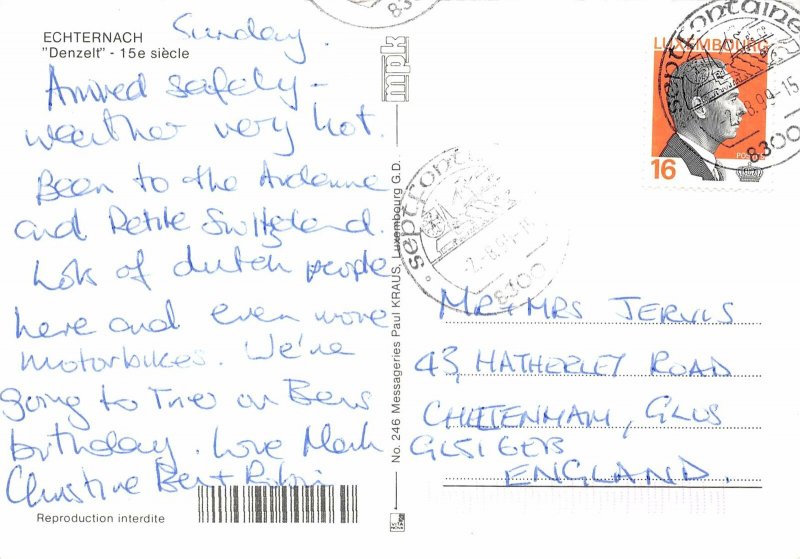 ECHTERNACH
"Denzelt" - 15e siècle
Sunday.
Arrived safely -
weather very hot.
Been to the Ardenne
and Petite Switzland.
Lots of dutch people
here and even more
motorbikes. We're
going to Trier on Bens
birthday. Love Mark
Christine Ben + Robin
Reproduction interdite
mpk
No. 246 Messageries Paul KRAUS, Luxembourg G.D.
septfontaines
8300
LUXEMBOURG
16
septfontaines
-2.-8.99-15
8300
MR & MRS JERVIS
43, HATHERLEY ROAD
CHELTENHAM, GLOS
GL51 6EB
ENGLAND.